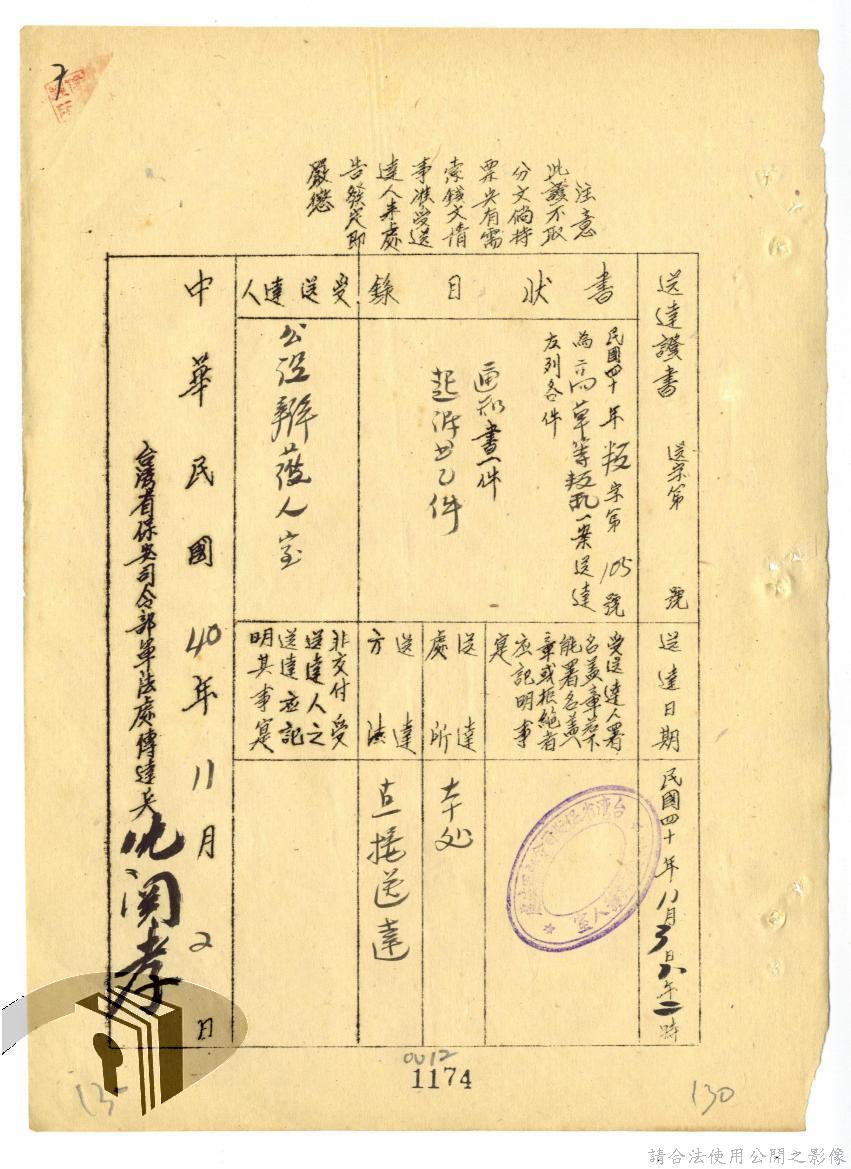 注意
此證不取
分文倘持
票央有需
索錢文情
事准受送
達人来處
告發定即
嚴懲
送達證書　送字第　號
書狀目錄
民國四十年叛字第105號
為高草等叛亂一案送達
左列各件
通知書一件
起訴書乙件
受送達人
公設辯護人室
送達日期
民國四十年11月　日　午二時
受送達人署
名盖章若不
能署名盖
章或拒絕者
应記明事
寔
送達處所
本処
送達方法
直接送達
非交付受
送達人之
送達应記
明其事寔
中華民國40年11月2日
台湾省保安司令部軍法處傳達兵
0012
1174
130
請合法使用公開之影像